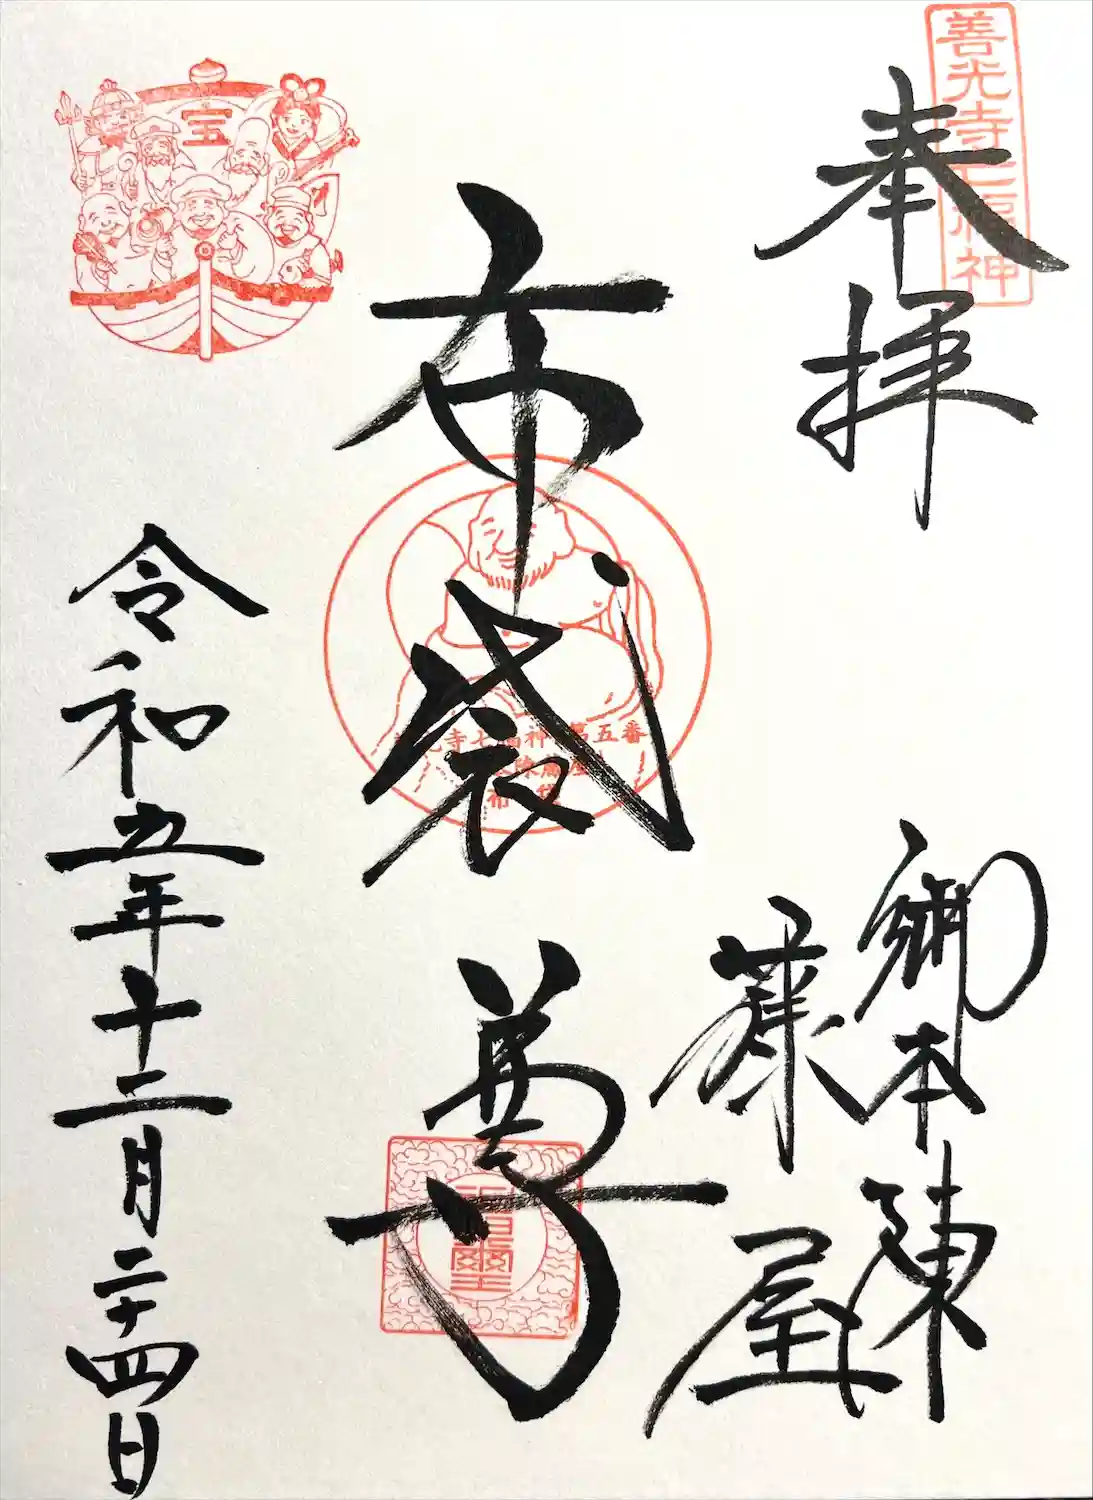 善光寺七福神
奉拝
御本陳
藤屋
布袋尊
寺七福神 第五番
布袋
宝
令和五年十二月二十四日